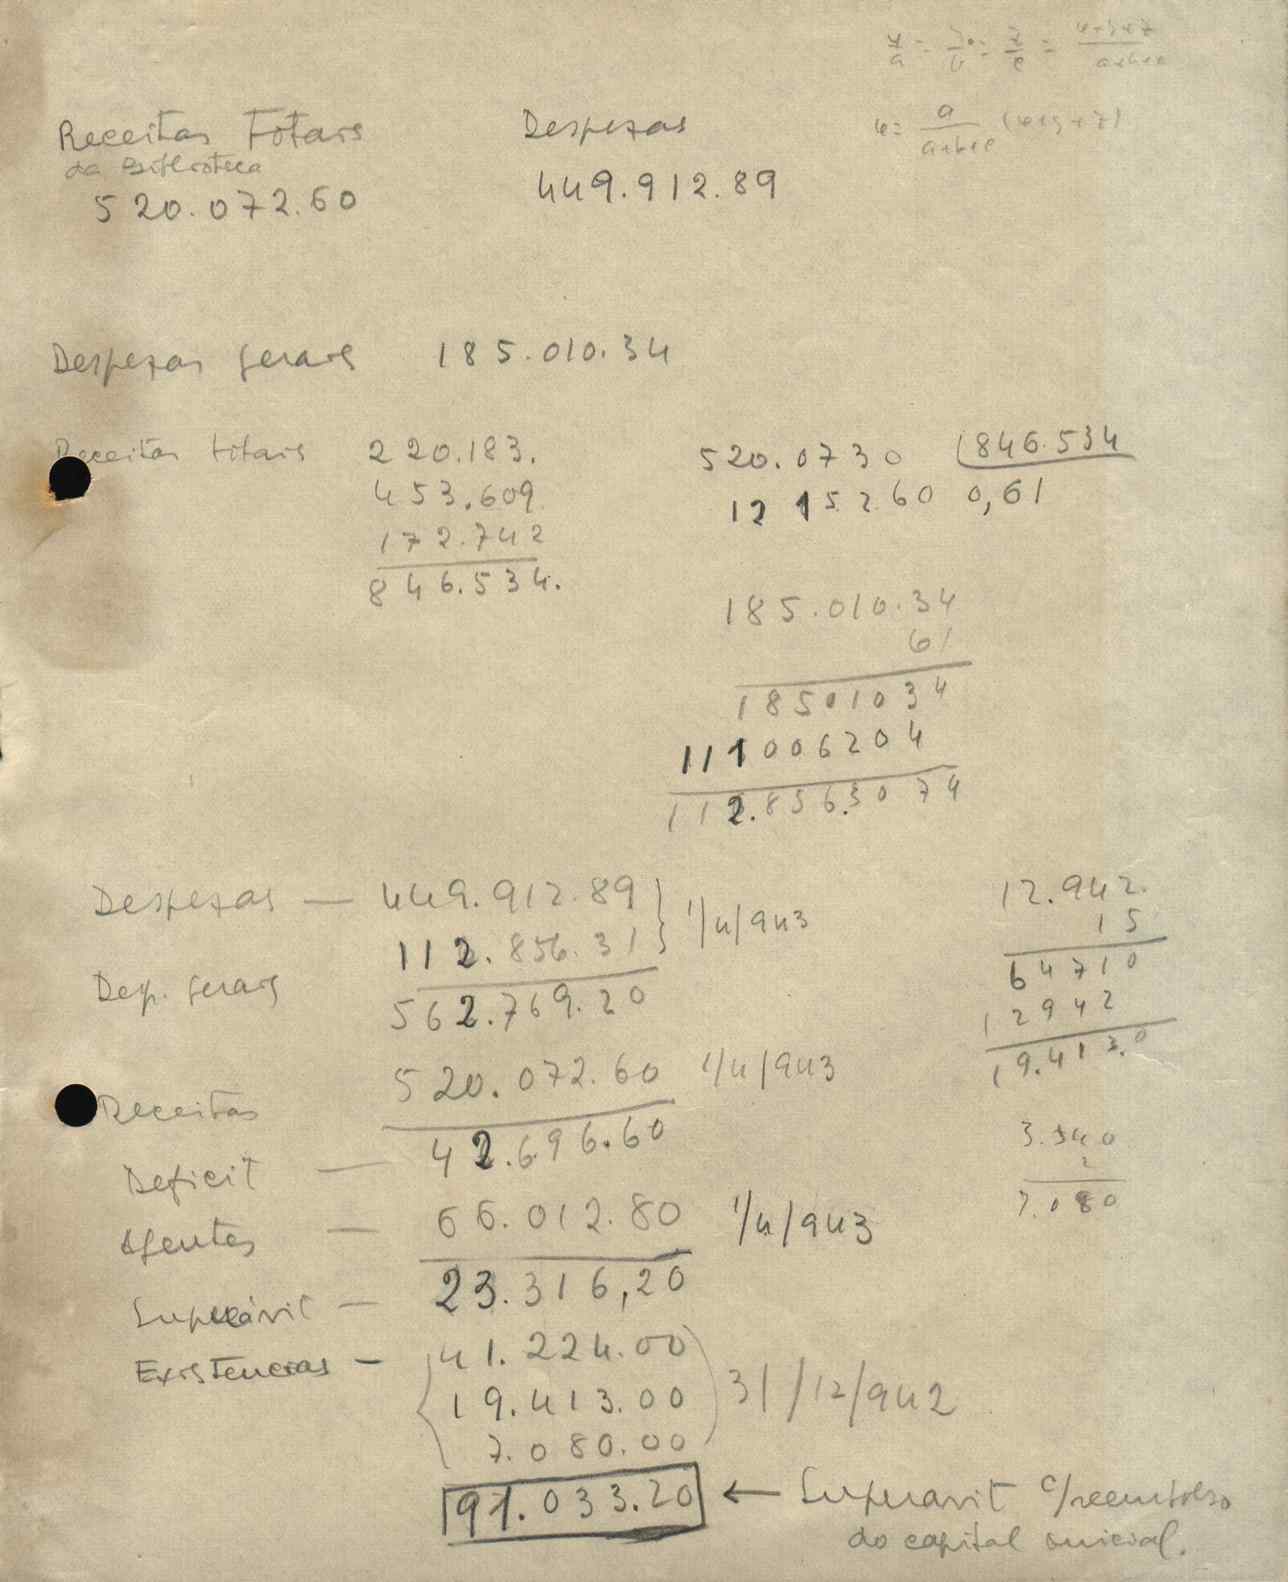 x/a = y/b = z/c = x+y+z / a+b+c
x = a / a+b+c (x+y+z)
Receitas Totais
da Biblioteca
520.072.60
Despezas
449.912.89
Despezas gerais 185.010.34
Receitas totais 220.183.
453.609
172.742
846.534.
520.0730 846.534
1215260 0,61
185.010.34
61
18501034
111006204
112.856.3074
Despezas — 449.912.89 } 1/4/943
Dep. gerais 112.856.31
562.769.20
Receitas 520.072.60 1/4/943
Deficit — 42.696.60
Agentes — 66.012.80 1/4/943
Superávit — 23.316,20
Existencias — 41.224.00
19.413.00 31/12/942
7.080.00
91.033.20 ← Superavit c/reembolso
do capital inicial.
12.942.
15
64710
12942
19.413.0
3.540
2
7.080